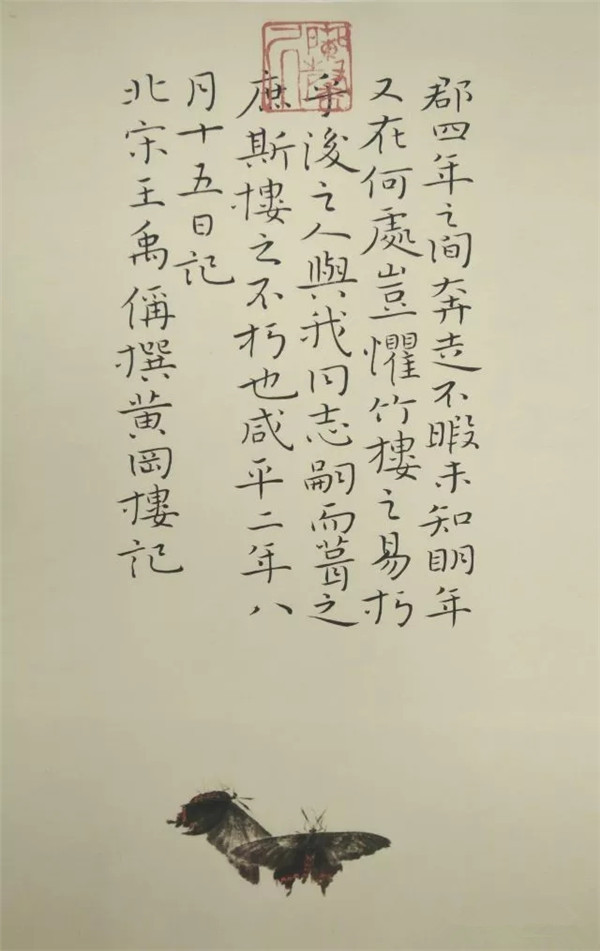 郡四年之間奔走不暇未知明年
又在何處豈懼竹樓之易朽
乎後之人與我同志嗣而葺之
庶斯樓之不朽也咸平二年八
月十五日記
北宋王禹偁撰黄岡樓記